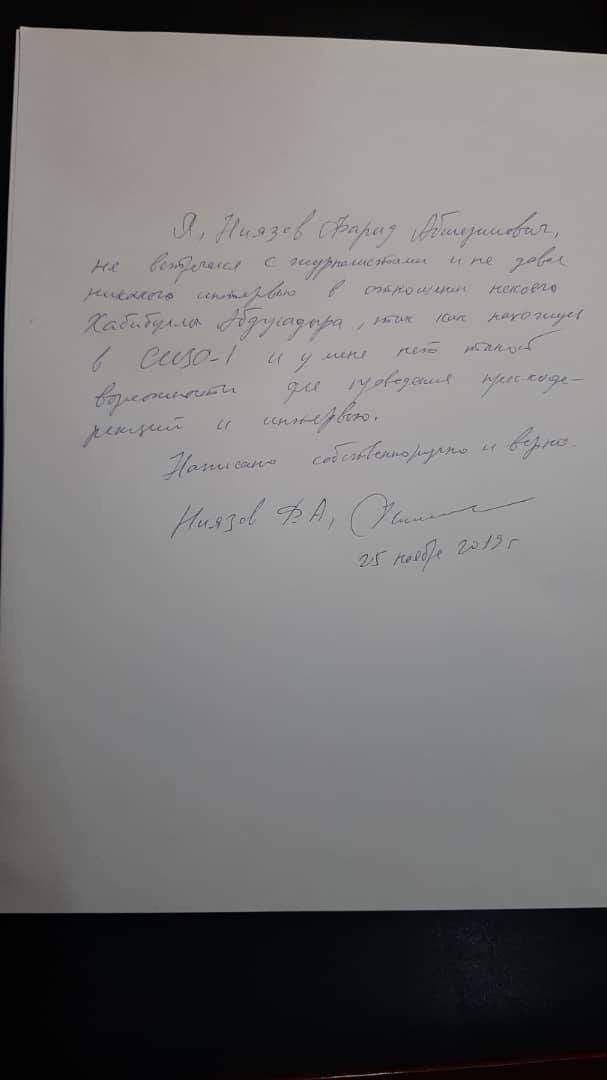 Я, Ниязов Фарид Абшезимович,
не встречался с журналистами и не давал
никакого интервью в отношении некоего
Хабибуллы Абдукадыра, так как нахожусь
в СИЗО-1 и у меня нет такой
возможности для проведения пресс-конфе-
ренций и интервью.
Написано собственноручно и верно.
Ниязов Ф.А,
25 ноября 2019 г